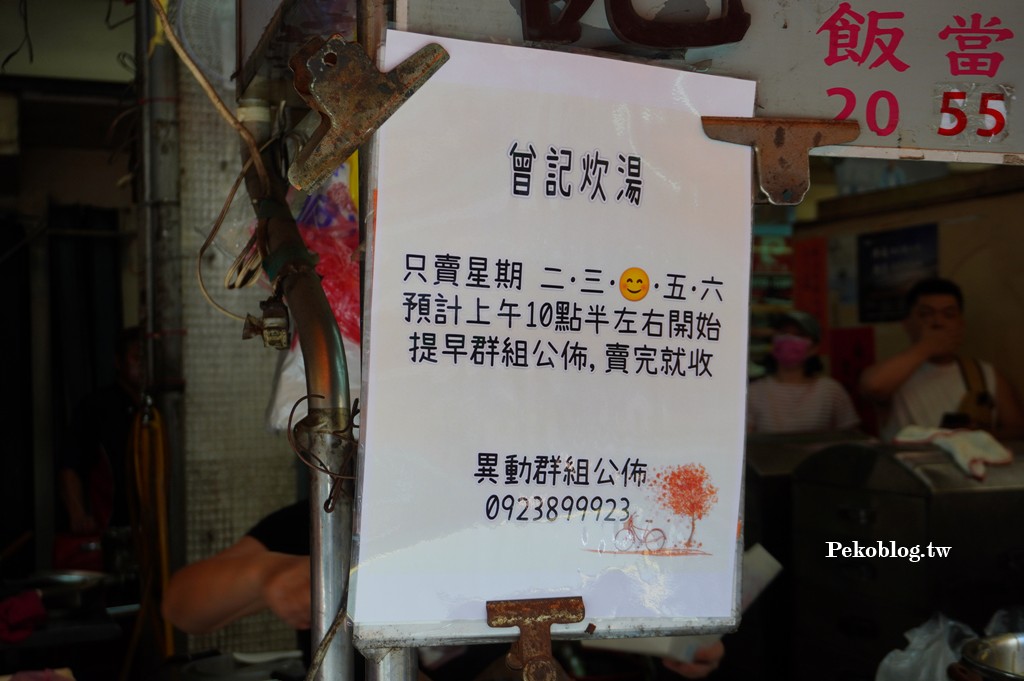 飯 當
20 55
曾記炊湯
只賣星期 二·三·😊·五·六
預計上午10點半左右開始
提早群組公佈,賣完就收
異動群組公佈
0923899923
Pekoblog.tw